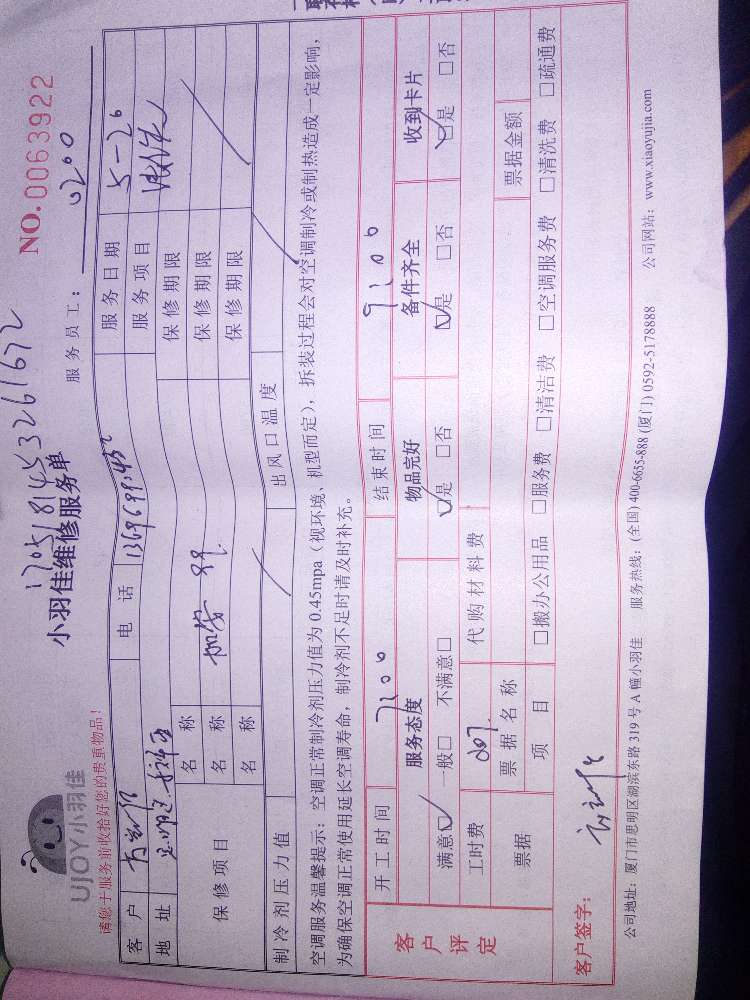 UJOY小羽佳
请您于服务前收拾好您的贵重物品!
小羽佳维修服务单
NO.0063922
服务员工:
客户 电话 服务日期 5-26
地址 服务项目
保修项目 名称 保修期限
名称 保修期限
名称 保修期限
制冷剂压力值 出风口温度
空调服务温馨提示:空调正常制冷剂压力值为0.45mpa(视环境、机型而定),拆装过程会对空调制冷或制热造成一定影响,
为确保空调正常使用延长空调寿命,制冷剂不足时请及时补充。
开工时间 7:00 结束时间 9:00
客户评定
服务态度 物品完好 备件齐全 收到卡片
满意☑ 一般□ 不满意□ ☑是 □否 ☑是 □否 ☑是 □否
工时费 代购材料费
票据 票据名称 票据金额
项目 □搬办公用品 □服务费 □清洁费 □空调服务费 □清洗费 □疏通费
客户签字:
公司地址:厦门市思明区湖滨东路319号A幢小羽佳 服务热线:(全国)400-6655-888 (厦门)0592-5178888 公司网站:www.xiaoyujia.com